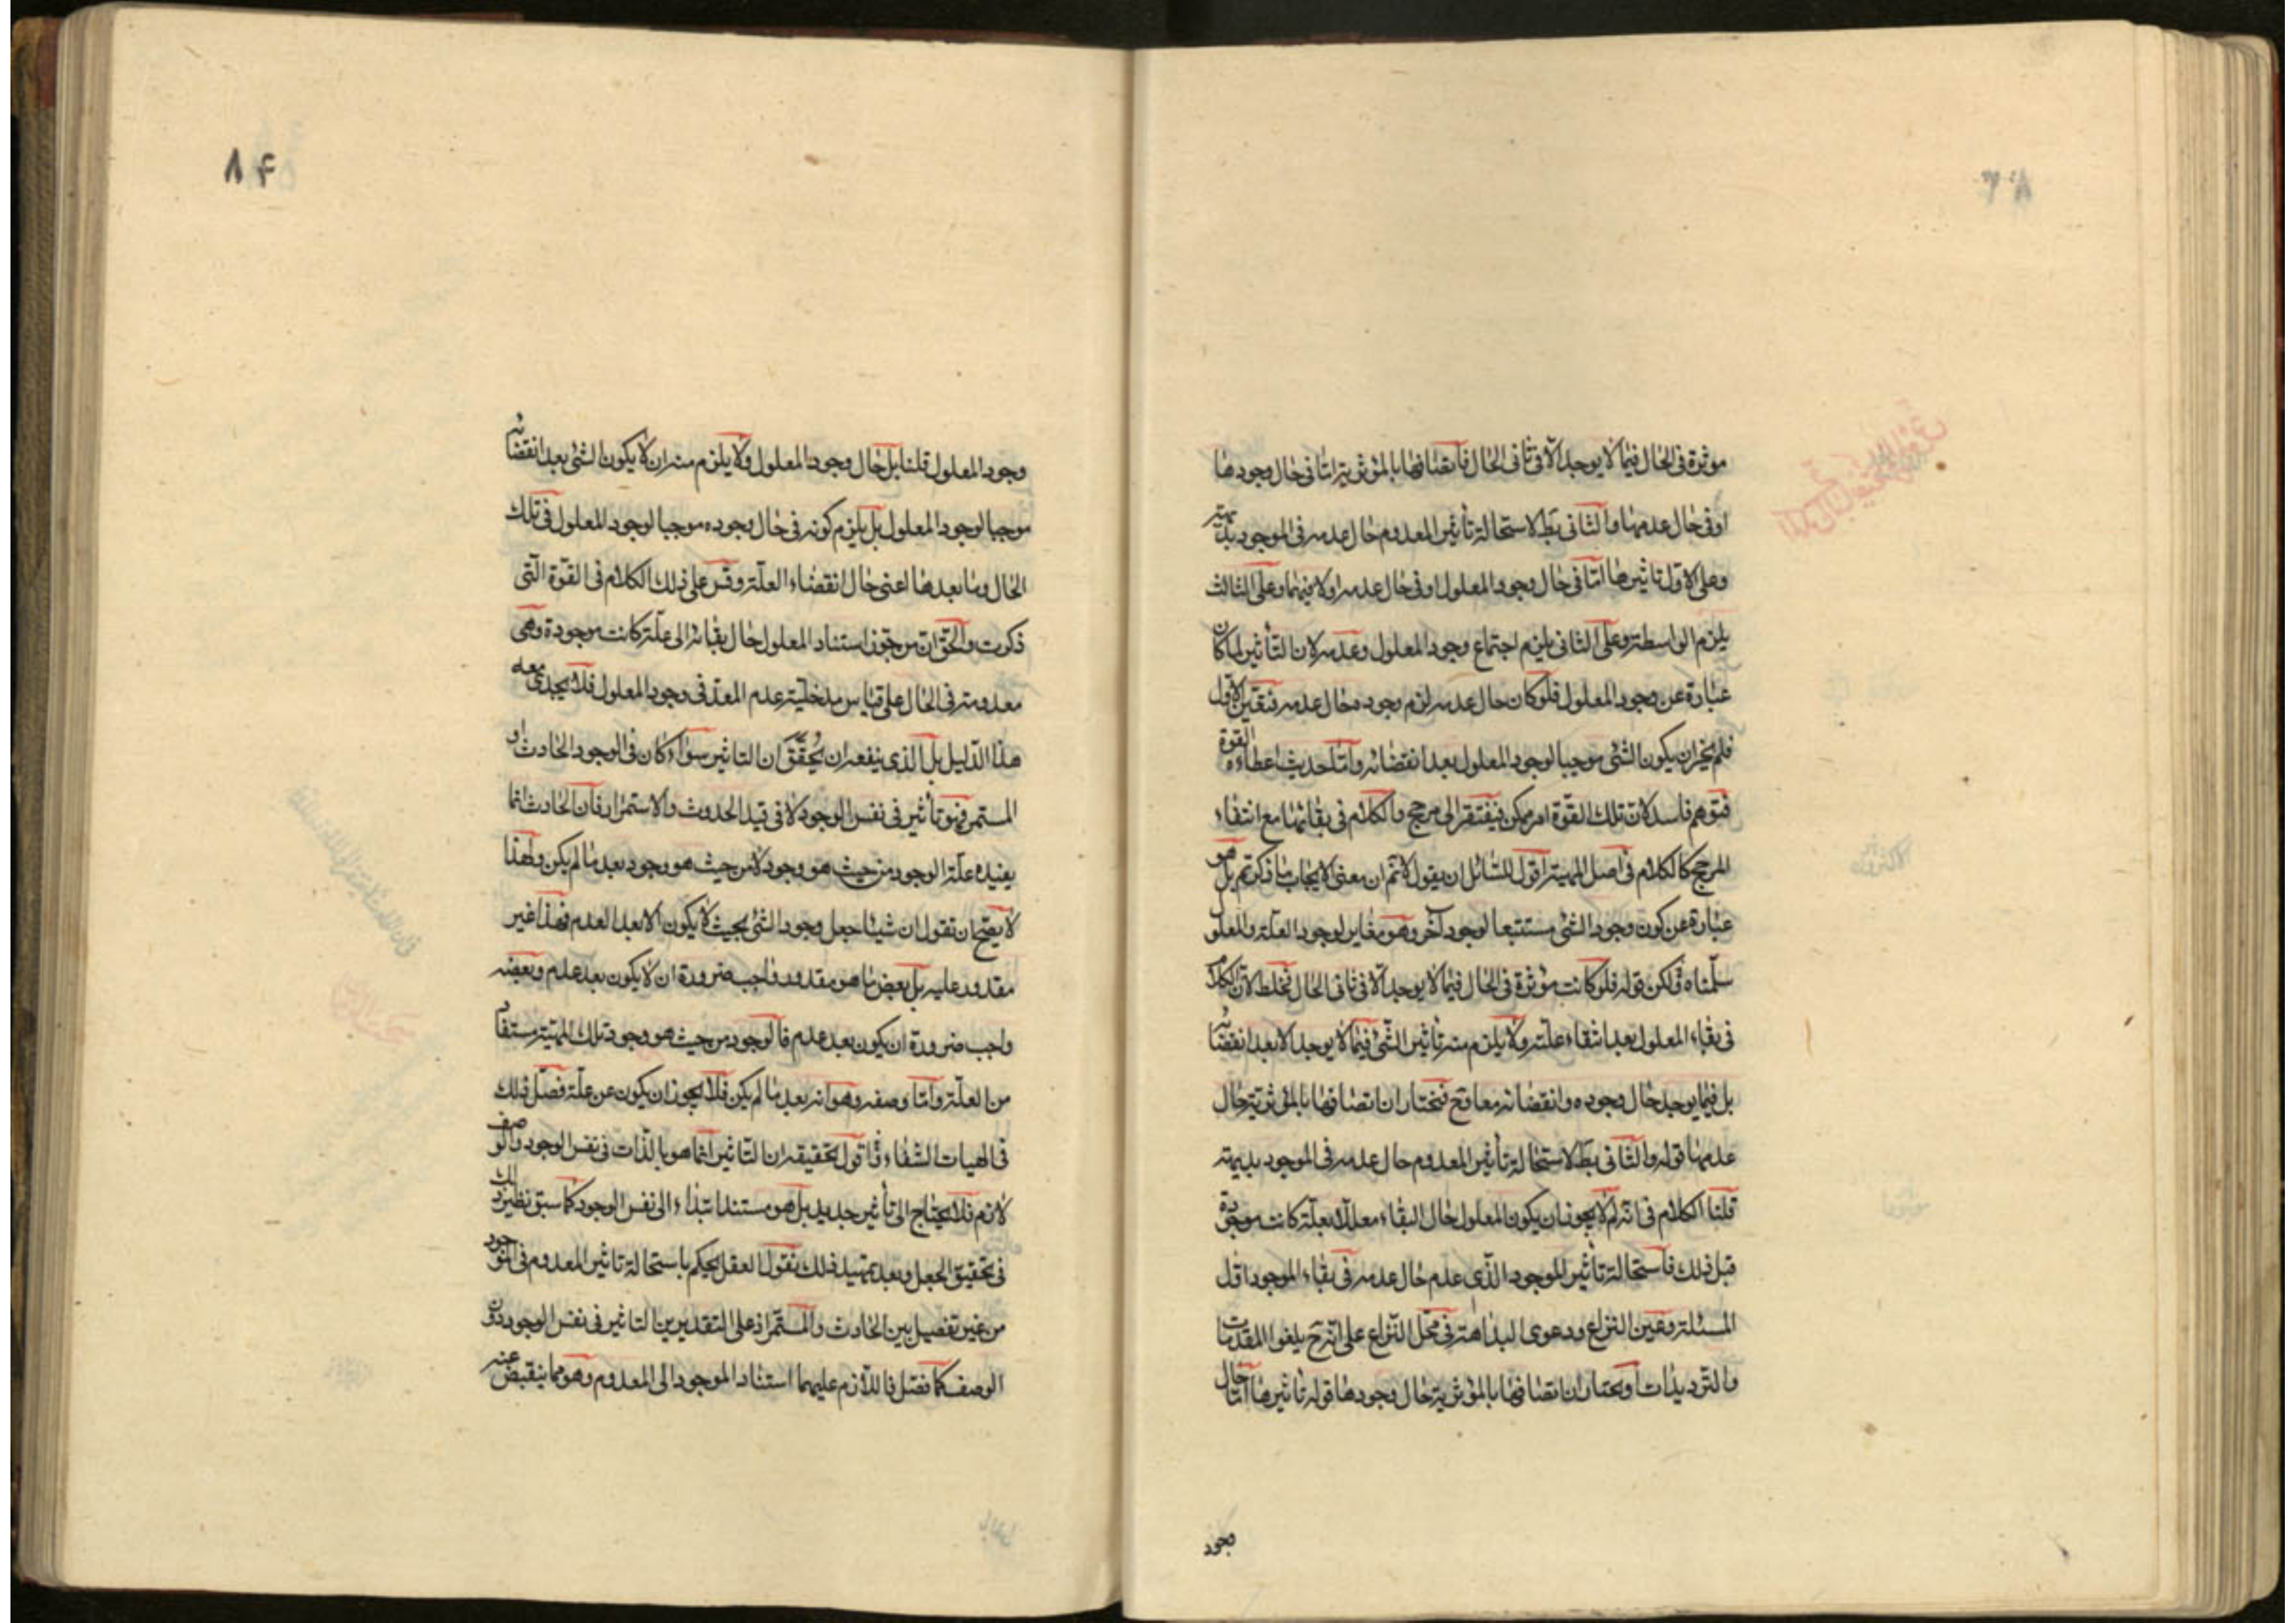 موثرة فى الحال فيما لا يوجد الا فى ثانى الحال فاتصافها بالمؤثرية اما فى حال وجودها
او فى حال عدمها والثانى بط لاستحالة تأثير المعدوم حال عدمه فى الموجود بديهة
وعلى الاول تاثيرها اما فى حال وجود المعلول او فى حال عدمه او لا فيهما وعلى الثالث
يلزم الواسطة وعلى الثانى يلزم اجتماع وجود المعلول وعدمه لان التأثير لما كان
عبارة عن وجود المعلول فلو كان حال عدمه لزم وجوده حال عدمه فتعين الاول
فلم يجز ان يكون الشئ موجبا لوجود المعلول بعد انقضائه واما حديث اعطاء القوة
فتوهم فاسد لان تلك القوة امر ممكن فيفتقر الى مرجح والكلام فى بقائها مع انتفاء
المرجح كالكلام فى اصل المهية اقول للسائل ان يقول لا نم ان معنى الايجاب ما ذكرتم بل هو
عبارة عن كون وجود الشئ مستتبعا لوجود آخر وهو مغاير لوجود العلة والمعلول
سلمناه ولكن قوله فلو كانت مؤثرة فى الحال فيما لا يوجد الا فى ثانى الحال فخلط لان الكلام
فى بقاء المعلول بعد انتفاء علته ولا يلزم منه تأثير الشئ فيما لا يوجد الا بعد انقضائه
بل فيما يوجد حال وجوده وانقضائه معا وح فنختار ان اتصافها بالمؤثرية حال
عدمها قوله والثانى بط لاستحالة تأثير المعدوم حال عدمه فى الموجود بديهة
قلنا الكلام فى انه لم لا يجوز ان يكون المعلول حال البقاء معللا بعلة كانت موجودة
قبل ذلك فاستحالة تأثير الموجود الذى عدم حال عدمه فى بقاء الموجود اول
المسئلة وعين النزاع ودعوى البداهة فى محل النزاع على انه ح يلغوا المقدمات
والترديدات او نختار ان اتصافها بالمؤثرية حال وجودها قوله تاثيرها اما حال
وجود
٨٤
وجود المعلول قلنا بل حال وجود المعلول ولا يلزم منه ان لا يكون الشئ بعد انقضائه
موجبا لوجود المعلول بل يلزم كونه فى حال وجوده موجبا لوجود المعلول فى تلك
الحال وما بعدها اعنى حال انقضاء العلة وقس على ذلك الكلام فى القوة التى
ذكرت والحق ان من جوز استناد المعلول حال بقائه الى علة كانت موجودة وهى
معدومة فى الحال على قياس مدخلية عدم المعد فى وجود المعلول فلا يجدى معه
هذا الدليل بل الذى ينفعه ان يحقق ان التاثير سواء كان فى الوجود الحادث او
المستمر فهو تأثير فى نفس الوجود لا فى قيد الحدوث والاستمرار فان الحادث انما
يفيده علة الوجود من حيث هو وجود لا من حيث هو وجود بعد ما لم يكن ولهذا
لا يصح ان تقول ان شيئا جعل وجود الشئ بحيث لا يكون الا بعد العدم فهذا غير
مقدور عليه بل بعض ما هو مقدور واجب ضرورة ان لا يكون بعد عدم وبعضه
واجب ضرورة ان يكون بعد عدم فالوجود من حيث هو وجود تلك المهية مستفاد
من العلة واما وصفه وهو انه بعد ما لم يكن فلا يجوز ان يكون عن علة فصل ذلك
فى الهيات الشفاء واقول تحقيقه ان التاثير انما هو بالذات فى نفس الوجود والوصف
لازم فلا يحتاج الى تأثير جديد بل هو مستند ابتداء الى نفس الوجود كما سبق نظير ذلك
فى تحقيق الجعل وبعد تمهيد ذلك نقول العقل يحكم باستحالة تاثير المعدوم فى الموجود
من غير تفصيل بين الحادث والمستمر اذ على التقديرين التاثير فى نفس الوجود دون
الوصف كما فصل فاللازم عليهما استناد الموجود الى المعدوم وهو مما ينقبض عنه